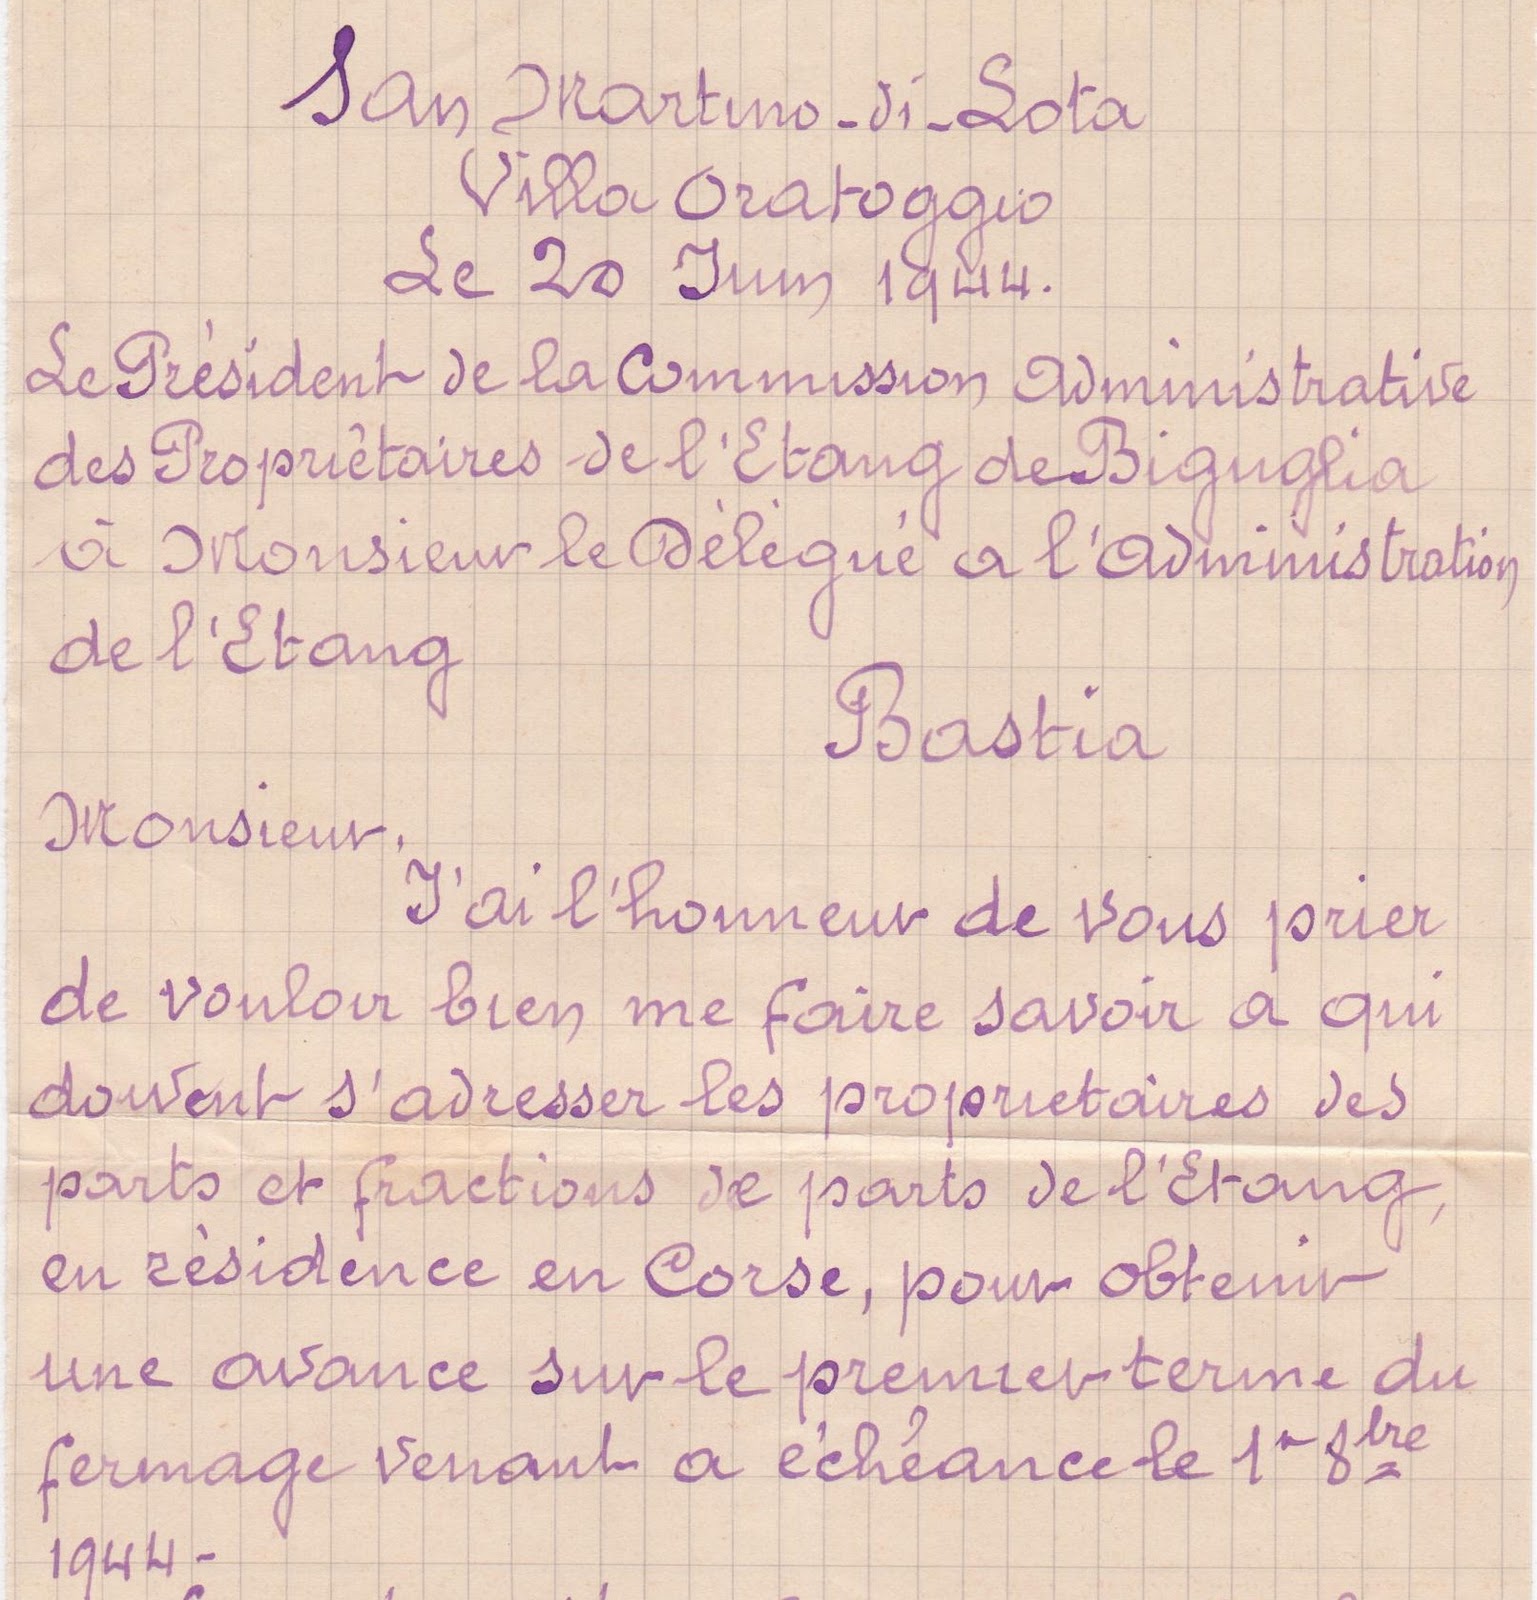 San Martino-di-Lota
Villa Oratoggio
Le 20 Juin 1944.
Le Président de la Commission Administrative
des Propriétaires de l'Etang de Biguglia
à Monsieur le Délégué a l'Administration
de l'Etang
Bastia
Monsieur,
J'ai l'honneur de vous prier
de vouloir bien me faire savoir a qui
doivent s'adresser les proprietaires des
parts et fractions de parts de l'Etang,
en résidence en Corse, pour obtenir
une avance sur le premier terme du
fermage venant a échéance le 1er 8bre
1944-